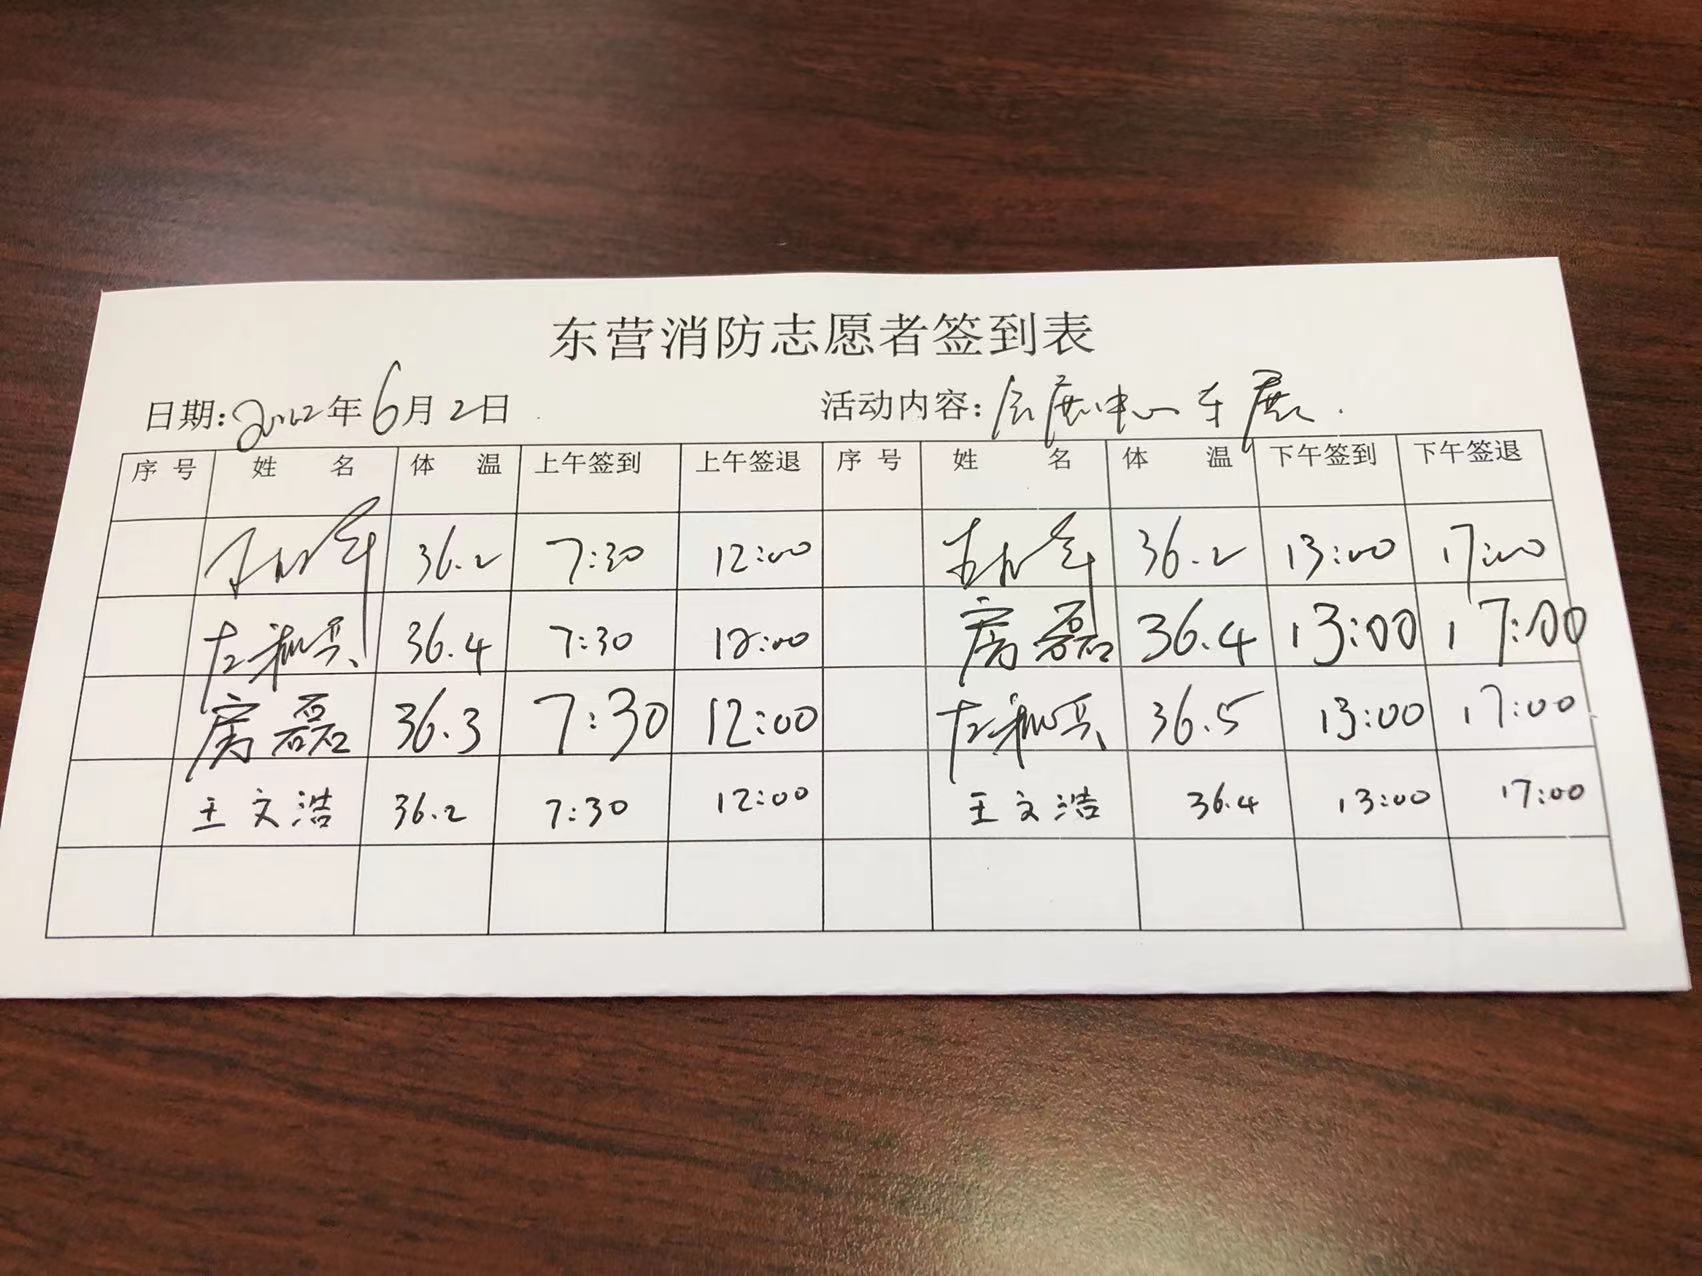 东营消防志愿者签到表
日期:2022年6月2日 活动内容:会展中心车展.
序号 姓名 体温 上午签到 上午签退 序号 姓名 体温 下午签到 下午签退
36.2 7:30 12:00 36.2 13:00 17:00
36.4 7:30 12:00 房磊 36.4 13:00 17:00
房磊 36.3 7:30 12:00 36.5 13:00 17:00
王文浩 36.2 7:30 12:00 王文浩 36.4 13:00 17:00